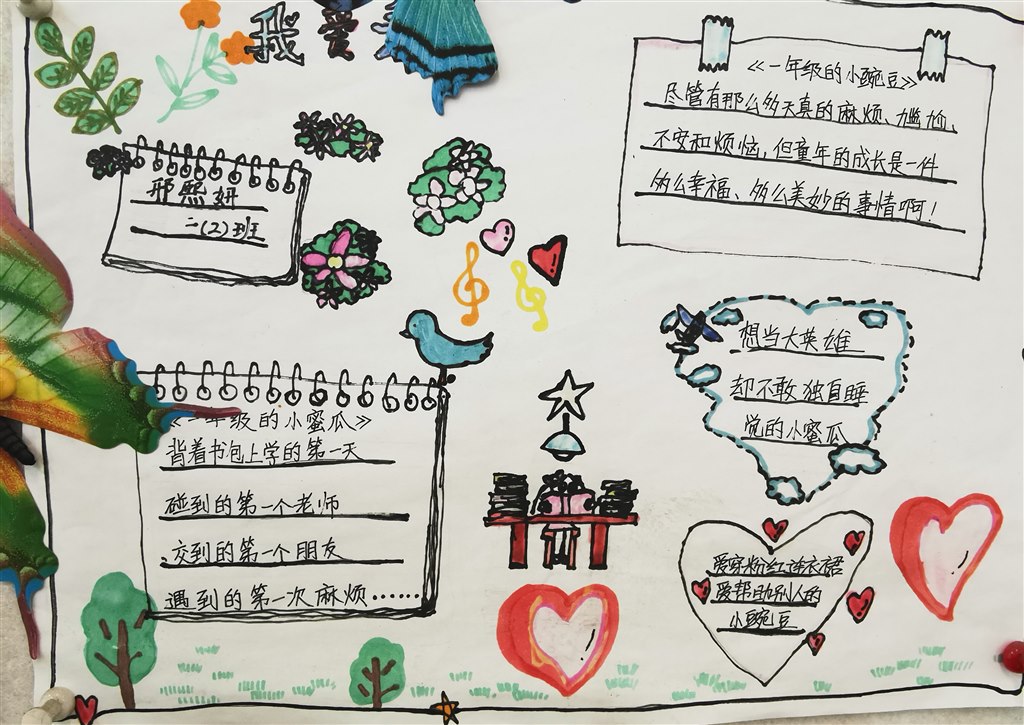 我爱
邢熙妍
二(2)班
《一年级的小豌豆》
尽管有那么多天真的麻烦、尴尬、
不安和烦恼,但童年的成长是一件
多么幸福、多么美妙的事情啊!
《一年级的小蜜瓜》
背着书包上学的第一天
碰到的第一个老师
交到的第一个朋友
遇到的第一次麻烦……
想当大英雄
却不敢独自睡
觉的小蜜瓜
爱穿粉红连衣裙
爱帮助别人的
小豌豆